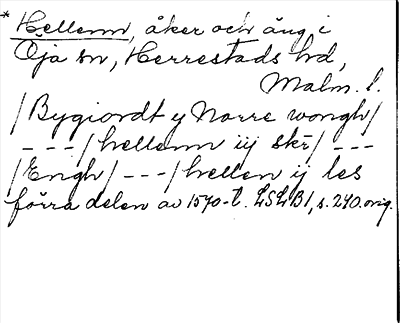 * Hellenn, åker och äng i
Öja sn, Herrestads hd,
Malm. l.
/Bygiordt y Norre wongh/
---/hellenn iij skr/ ---
/Engh/ ---/hellen ij les
förra delen av 1570-t. LSLB1, s. 240. orig.